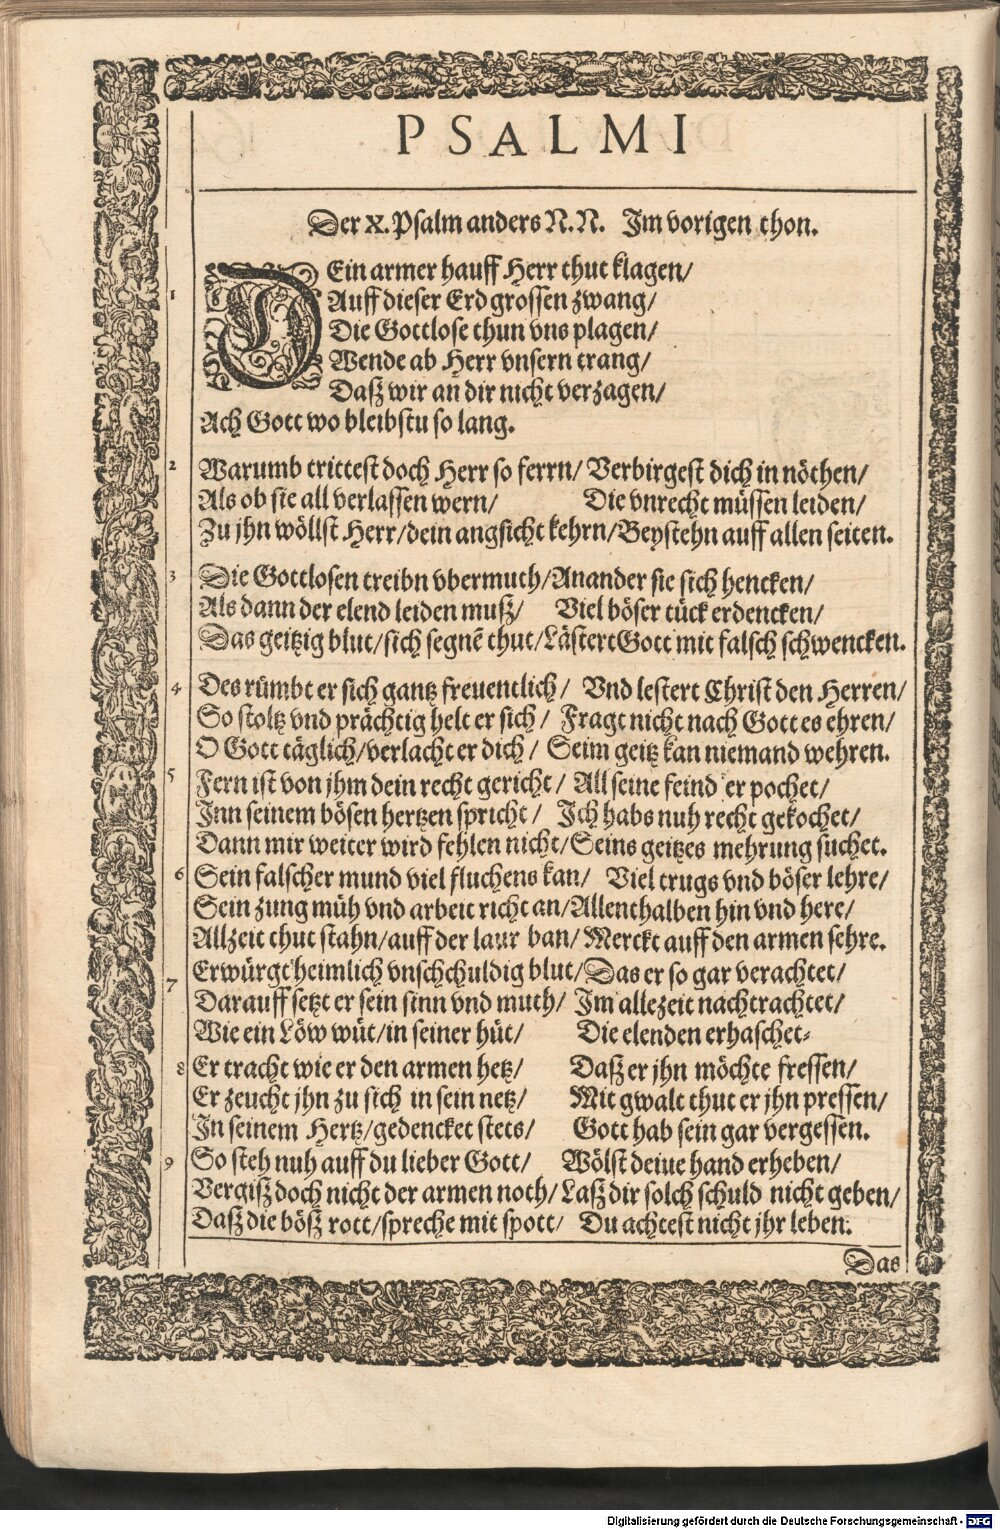 PSALMI
Der X. Psalm anders N.N. Im vorigen thon.
DEin armer hauff Herr thut klagen/
1 Auff dieser Erd grossen zwang/
Die Gottlose thun vns plagen/
Wende ab Herr vnsern trang/
Daß wir an dir nicht verzagen/
Ach Gott wo bleibstu so lang.
2 Warumb trittest doch Herr so ferrn/ Verbirgest dich in nöthen/
Als ob sie all verlassen wern/ Die vnrecht müssen leiden/
Zu jhn wöllst Herr/dein angsicht kehrn/Beystehn auff allen seiten.
3 Die Gottlosen treibn vbermuth/Anander sie sich hencken/
Als dann der elend leiden muß/ Viel böser tück erdencken/
Das geitzig blut/sich segnē thut/LästertGott mit falsch schwencken.
4 Des rümbt er sich gantz freuentlich/ Vnd lestert Christ den Herren/
So stoltz vnd prächtig helt er sich/ Fragt nicht nach Gottes ehren/
O Gott täglich/verlacht er dich/ Seim geitz kan niemand wehren.
5 Fern ist von jhm dein recht gericht/ All seine feind er pochet/
Inn seinem bösen hertzen spricht/ Ich habs nuh recht gekochet/
Dann mir weiter wird fehlen nicht/Seins geitzes mehrung suchet.
6 Sein falscher mund viel fluchens kan/ Viel trugs vnd böser lehre/
Sein zung müh vnd arbeit richt an/Allenthalben hin vnd here/
Allzeit thut stahn/auff der laur ban/Merckt auff den armen sehre.
7 Erwürgt heimlich vnschchuldig blut/Das er so gar verachtet/
Darauff setzt er sein sinn vnd muth/ Im allezeit nachtrachtet/
Wie ein Löw wüt/in seiner hüt/ Die elenden erhaschet⸗
8 Er tracht wie er den armen hetz/ Daß er jhn möchte fressen/
Er zeucht jhn zu sich in sein netz/ Mit gwalt thut er jhn pressen/
In seinem Hertz/gedencket stets/ Gott hab sein gar vergessen.
9 So steh nuh auff du lieber Gott/ Wölst deiue hand erheben/
Vergiß doch nicht der armen noth/Laß dir solch schuld nicht geben/
Daß die böß rott/spreche mit spott/ Du achtest nicht jhr leben.
Das
Digitalisierung gefördert durch die Deutsche Forschungsgemeinschaft - DFG